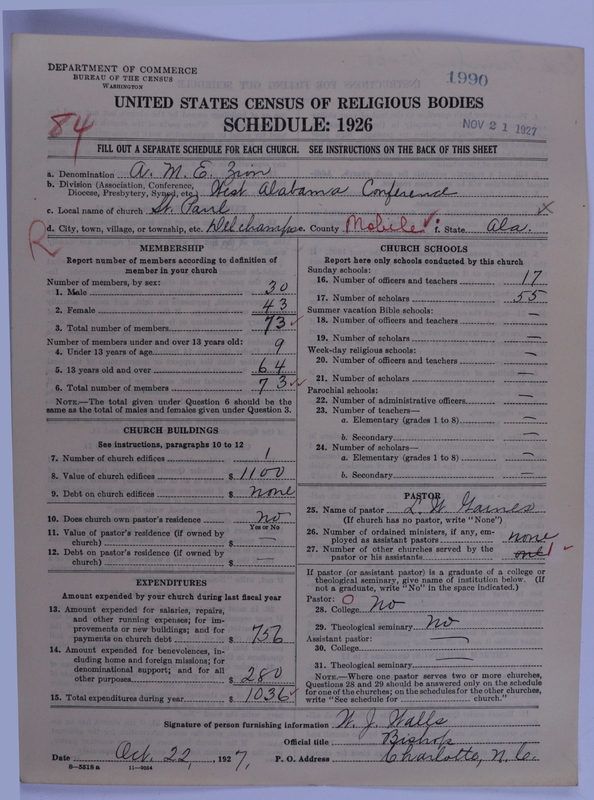 DEPARTMENT OF COMMERCE
BUREAU OF THE CENSUS
WASHINGTON
1990
UNITED STATES CENSUS OF RELIGIOUS BODIES
SCHEDULE: 1926
NOV 21 1927
84
FILL OUT A SEPARATE SCHEDULE FOR EACH CHURCH. SEE INSTRUCTIONS ON THE BACK OF THIS SHEET
a. Denomination A. M. E. Zion
b. Division (Association, Conference, Diocese, Presbytery, Synod, etc.) West Alabama Conference
c. Local name of church St. Paul x
d. City, town, village, or township, etc. Delchamps e. County Mobile f. State Ala.
R
MEMBERSHIP
Report number of members according to definition of
member in your church
Number of members, by sex:
1. Male 30
2. Female 43
3. Total number of members 73
Number of members under and over 13 years old:
4. Under 13 years of age 9
5. 13 years old and over 64
6. Total number of members 73
NOTE.—The total given under Question 6 should be
same as the total of males and females given under Question 3.
CHURCH BUILDINGS
See instructions, paragraphs 10 to 12
7. Number of church edifices 1
8. Value of church edifices $ 1100
9. Debt on church edifices $ none
10. Does church own pastor's residence no
Yes or No
11. Value of pastor's residence (if owned by
church) $ —
12. Debt on pastor's residence (if owned by
church) $ —
EXPENDITURES
Amount expended by your church during last fiscal year
13. Amount expended for salaries, repairs,
and other running expenses; for im-
provements or new buildings; and for
payments on church debt $ 756
14. Amount expended for benevolences, in-
cluding home and foreign missions; for
denominational support; and for all
other purposes $ 280
15. Total expenditures during year $ 1036
CHURCH SCHOOLS
Report here only schools conducted by this church
Sunday schools:
16. Number of officers and teachers 17
17. Number of scholars 55
Summer vacation Bible schools:
18. Number of officers and teachers —
19. Number of scholars —
Week-day religious schools:
20. Number of officers and teachers —
21. Number of scholars —
Parochial schools:
22. Number of administrative officers —
23. Number of teachers—
a. Elementary (grades 1 to 8) —
b. Secondary —
24. Number of scholars—
a. Elementary (grades 1 to 8) —
b. Secondary —
PASTOR
25. Name of pastor L. W. Gaines
(If church has no pastor, write "None")
26. Number of ordained ministers, if any, em-
ployed as assistant pastors none
27. Number of other churches served by the
pastor or his assistants one 1
If pastor (or assistant pastor) is a graduate of a college or
theological seminary, give name of institution below. (If
not a graduate, write "No" in the space indicated.)
Pastor: O
28. College No
29. Theological seminary No
Assistant pastor:
30. College —
31. Theological seminary —
NOTE.—Where one pastor serves two or more churches,
Questions 28 and 29 should be answered only on the schedule
for one of the churches; on the schedules for the other churches,
write "See schedule for church."
Signature of person furnishing information W. J. Walls
Official title Bishop
Date Oct. 22, 1927, P. O. Address Charlotte, N. C.
8—5518 a 11—9684